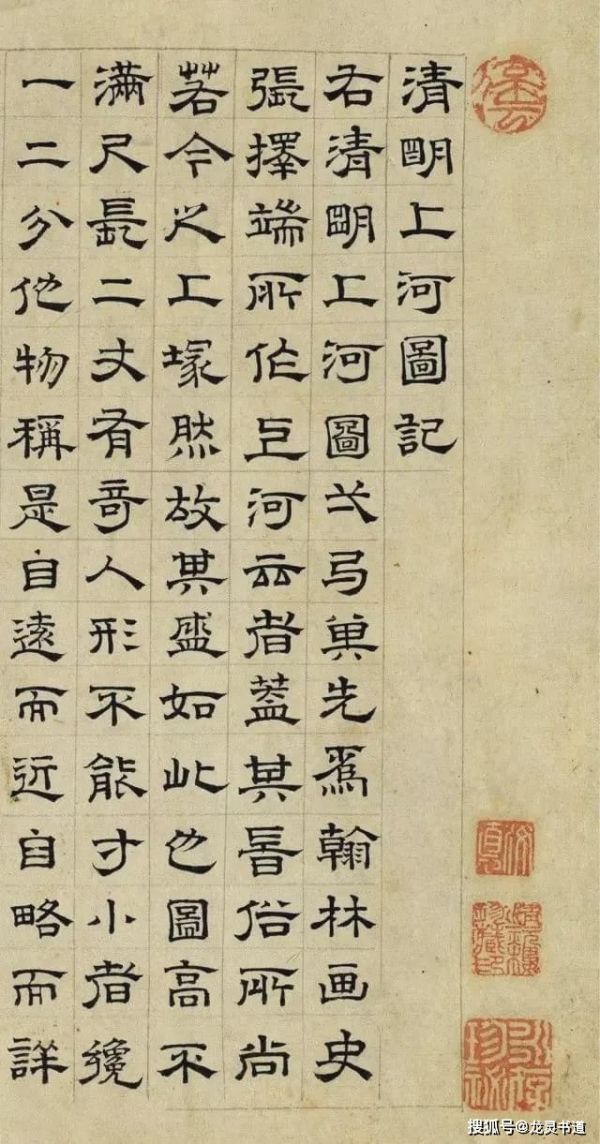 清明上河圖記
右清明上河圖弌弓先爲翰林画史
張擇端所作上河云者蓋其時俗所尚
若今之上塚然故其盛如此也圖高不
滿尺長二丈有奇人形不能寸小者纔
一二分他物稱是自遠而近自略而詳
搜狐号@龙灵书道